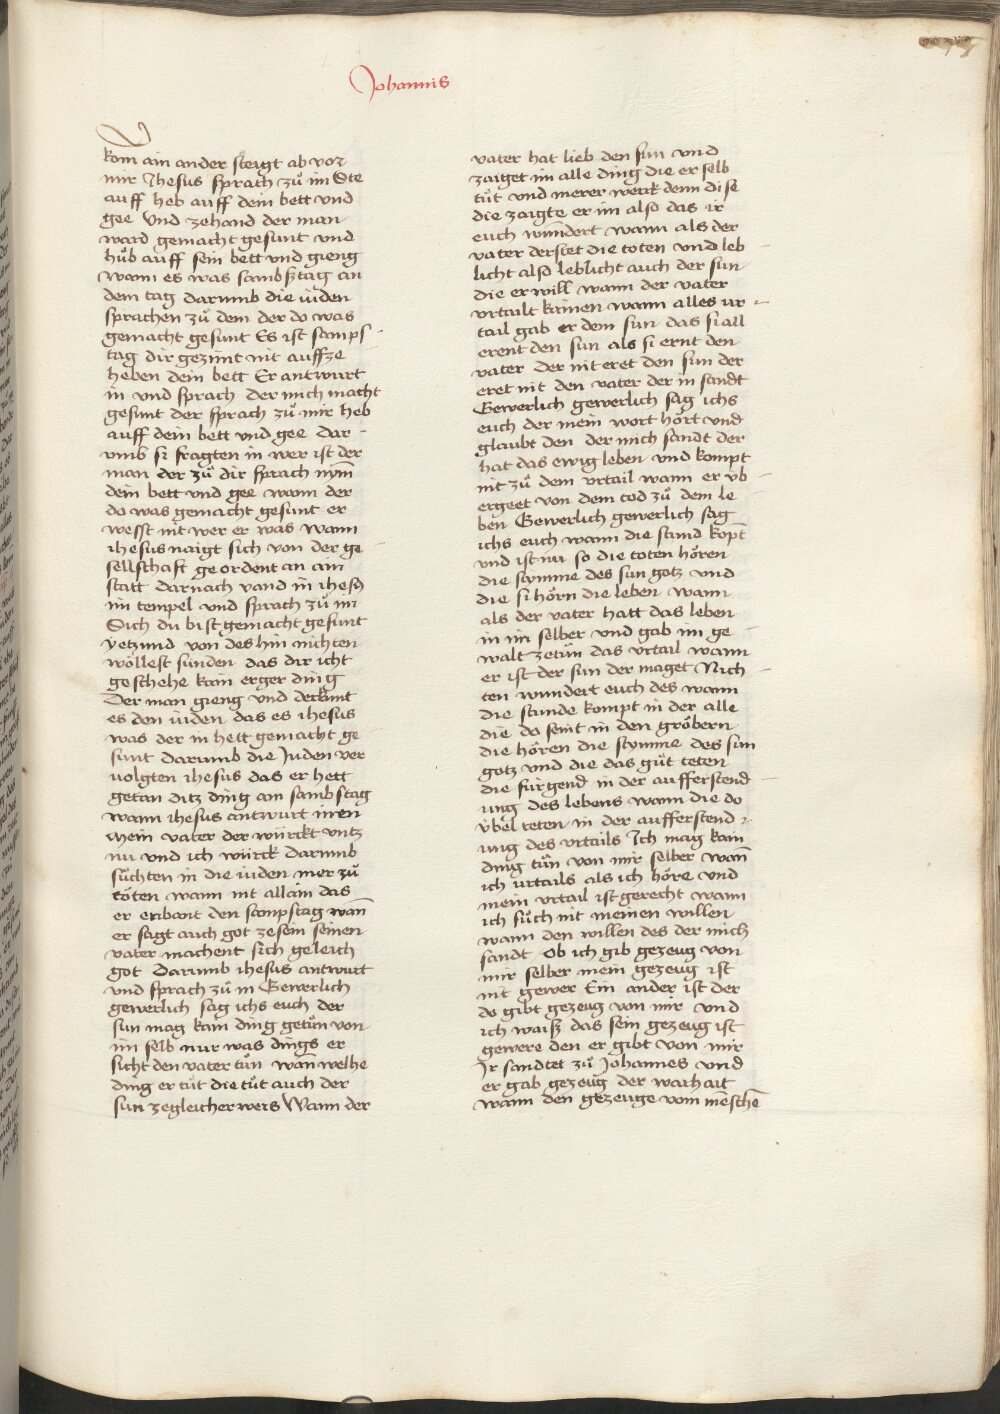 Johannis
kom ain ander steigt ab vor
mir Jhesus sprach zů im Ste
auff heb auff dein bett vnd
gee Vnd zehand der man
ward gemacht gesunt vnd
hůb auff sein bett vnd gieng
wann es was sambstag an
dem tag darumb die iuden
sprachen zů dem der do was
gemacht gesunt Es ist samps-
tag dir gezimt nit auffze
heben dein bett Er antwurt
in vnd sprach der mich macht
gesunt der sprach zů mir heb
auff dein bett vnd gee dar-
vmb si fragten in wer ist der
man der zů dir sprach nym̄
dein bett vnd gee wann der
do was gemacht gesunt er
wesst nit wer er was wann
ihesus naigt sich von der ge
sellschaft geordent an ain
statt darnach vand in ihesus
im tempel vnd sprach zů im
Sich du bist gemacht gesunt
yetzund von des hin nichten
wöllest sunden das dir icht
geschehe kain erger ding
Der man gieng vnd derkunt
es den iuden das es ihesus
was der in hett gemacht ge
sunt darumb die Juden ver
uolgten ihesus das er hett
getan ditz ding am sambstag
wann ihesus antwurt in en
Mein vater der würckt vntz
nu vnd ich würck darumb
sůchten in die iuden mer zů
töten wann nit allain das
er enbant den sampstag wan̄
er sagt auch got ze sein seinen
vater machent sich geleich
got Darumb ihesus antwurt
vnd sprach zů in Gewerlich
gewerlich sag ichs euch der
sun mag kain ding getůn von
im selb nur was dings er
sicht den vater tůn wan̄ welhe
ding er tůt die tůt auch der
sun zegleicher weis Wann der
vater hat lieb den sun vnd
zaiget im alle ding die er selb
tůt vnd merer werck denn dise
die zaigte er im also das ir
euch wundert wann als der
vater derstet die toten vnd leb-
licht also leblicht auch der sun
die er will wann der vater
vrtailt kainen wann alles vr-
tail gab er dem sun das si all
erent den sun als si ernt den
vater der nit eret den sun der
eret nit den vater der in sandt
Gewerlich gewerlich sag ichs
euch der mein wort hört vnd
glaubt den der mich sandt der
hat das ewig leben vnd kompt
nit zů dem vrtail wann er vb-
ergeet von dem tod zů dem le
ben Gewerlich gewerlich sag
ichs euch wann die stund kopt̄
vnd ist nu so die toten hören
die stymme des sun gotz vnd
die si hörn die leben wann
als der vater hatt das leben
in im selber vnd gab im ge-
walt zetůn das vrtail wann
er ist der sun der maget Nich-
ten wundert euch des wann
die stunde kompt in der alle
die do seint in den gröbern
die hören die stymme des sun
gotz vnd die das gůt teten
die fürgend in der aufferstend-
ung des lebens wann die do
vbel teten in der aufferstend-
ung des vrtails Ich mag kain
ding tůn von mir selber wan̄
ich vrtails als ich höre vnd
mein vrtail ist gerecht wann
ich sůch nit meinen willen
wann den willen des der mich
sandt Ob ich gib gezeug von
mir selber mein gezeug ist
nit gewer Ein ander ist der
do gibt gezeug von mir vnd
ich waisz das sein gezeug ist
gewere den er gibt von mir
Jr sandtet zů Johannes vnd
er gab gezeug der warhait
wann den gezeuge vom mēschē